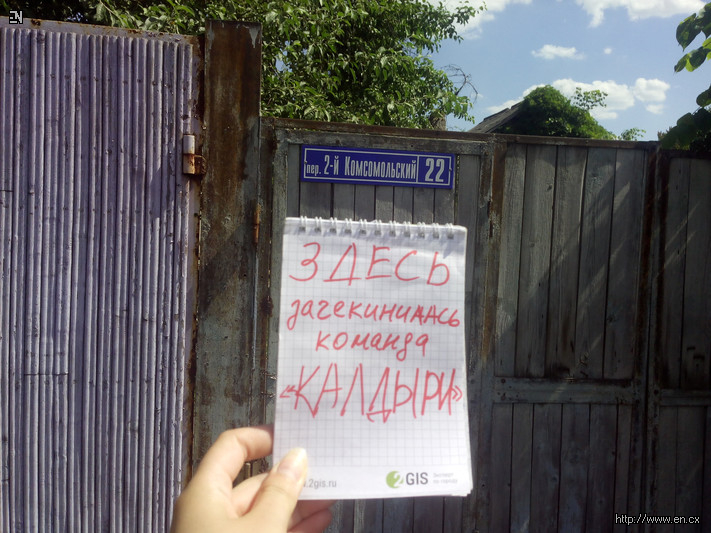 EN
пер. 2-й Комсомольский 22
ЗДЕСЬ
зачекинилась
команда
«КАЛДЫРИ»
2gis.ru
2GIS Эксперт
по городу
http://www.en.cx